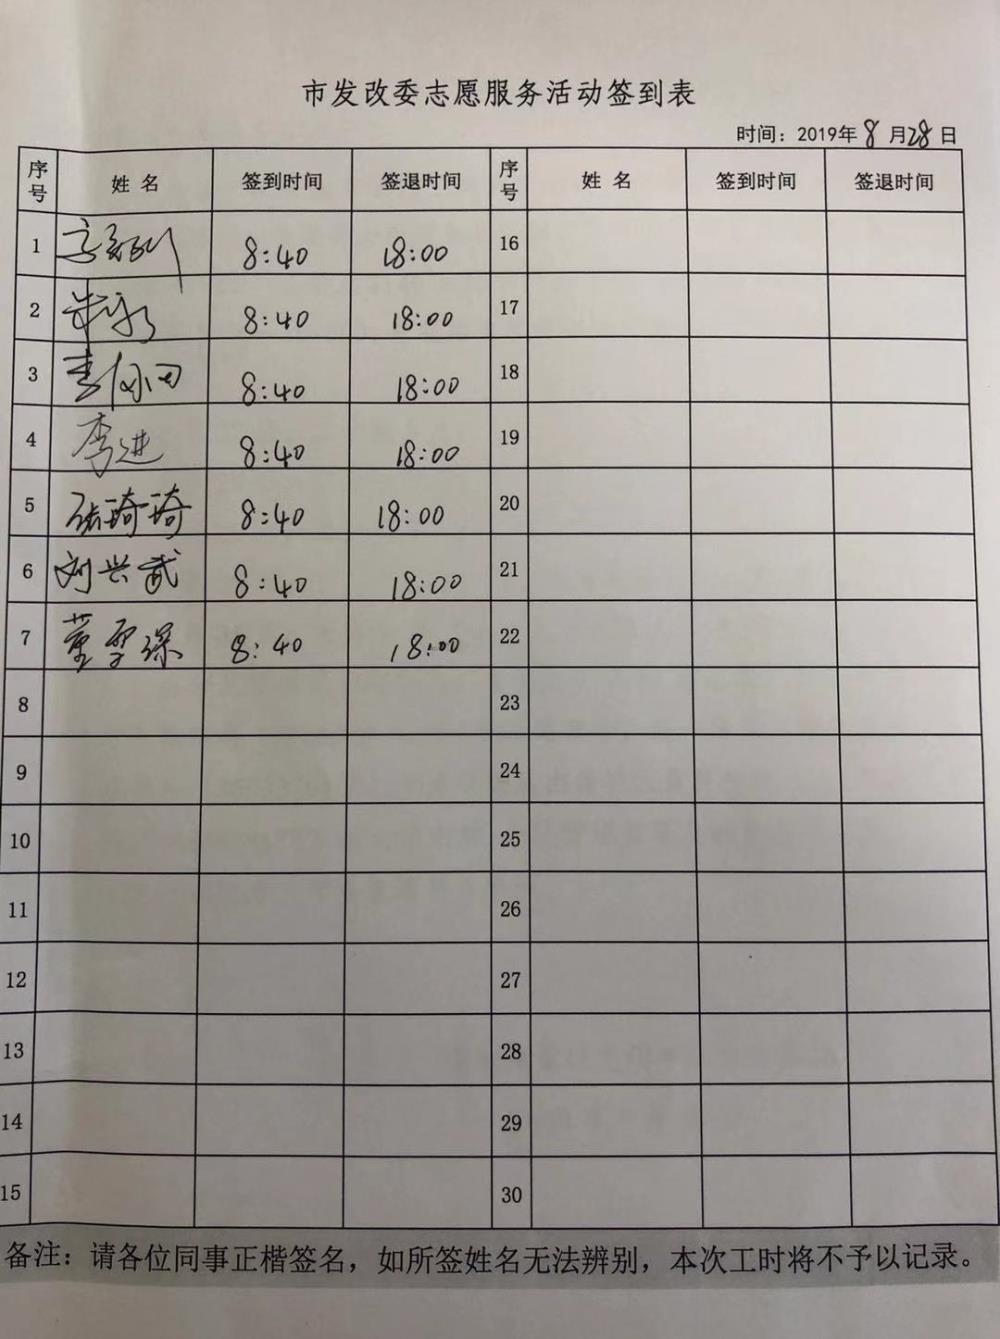 市发改委志愿服务活动签到表
时间：2019年8月28日
序号 姓名 签到时间 签退时间 序号 姓名 签到时间 签退时间
1 8:40 18:00 16
2 8:40 18:00 17
3 8:40 18:00 18
4 李进 8:40 18:00 19
5 张琦琦 8:40 18:00 20
6 刘兴武 8:40 18:00 21
7 董雪深 8:40 18:00 22
8 23
9 24
10 25
11 26
12 27
13 28
14 29
15 30
备注：请各位同事正楷签名，如所签姓名无法辨别，本次工时将不予以记录。